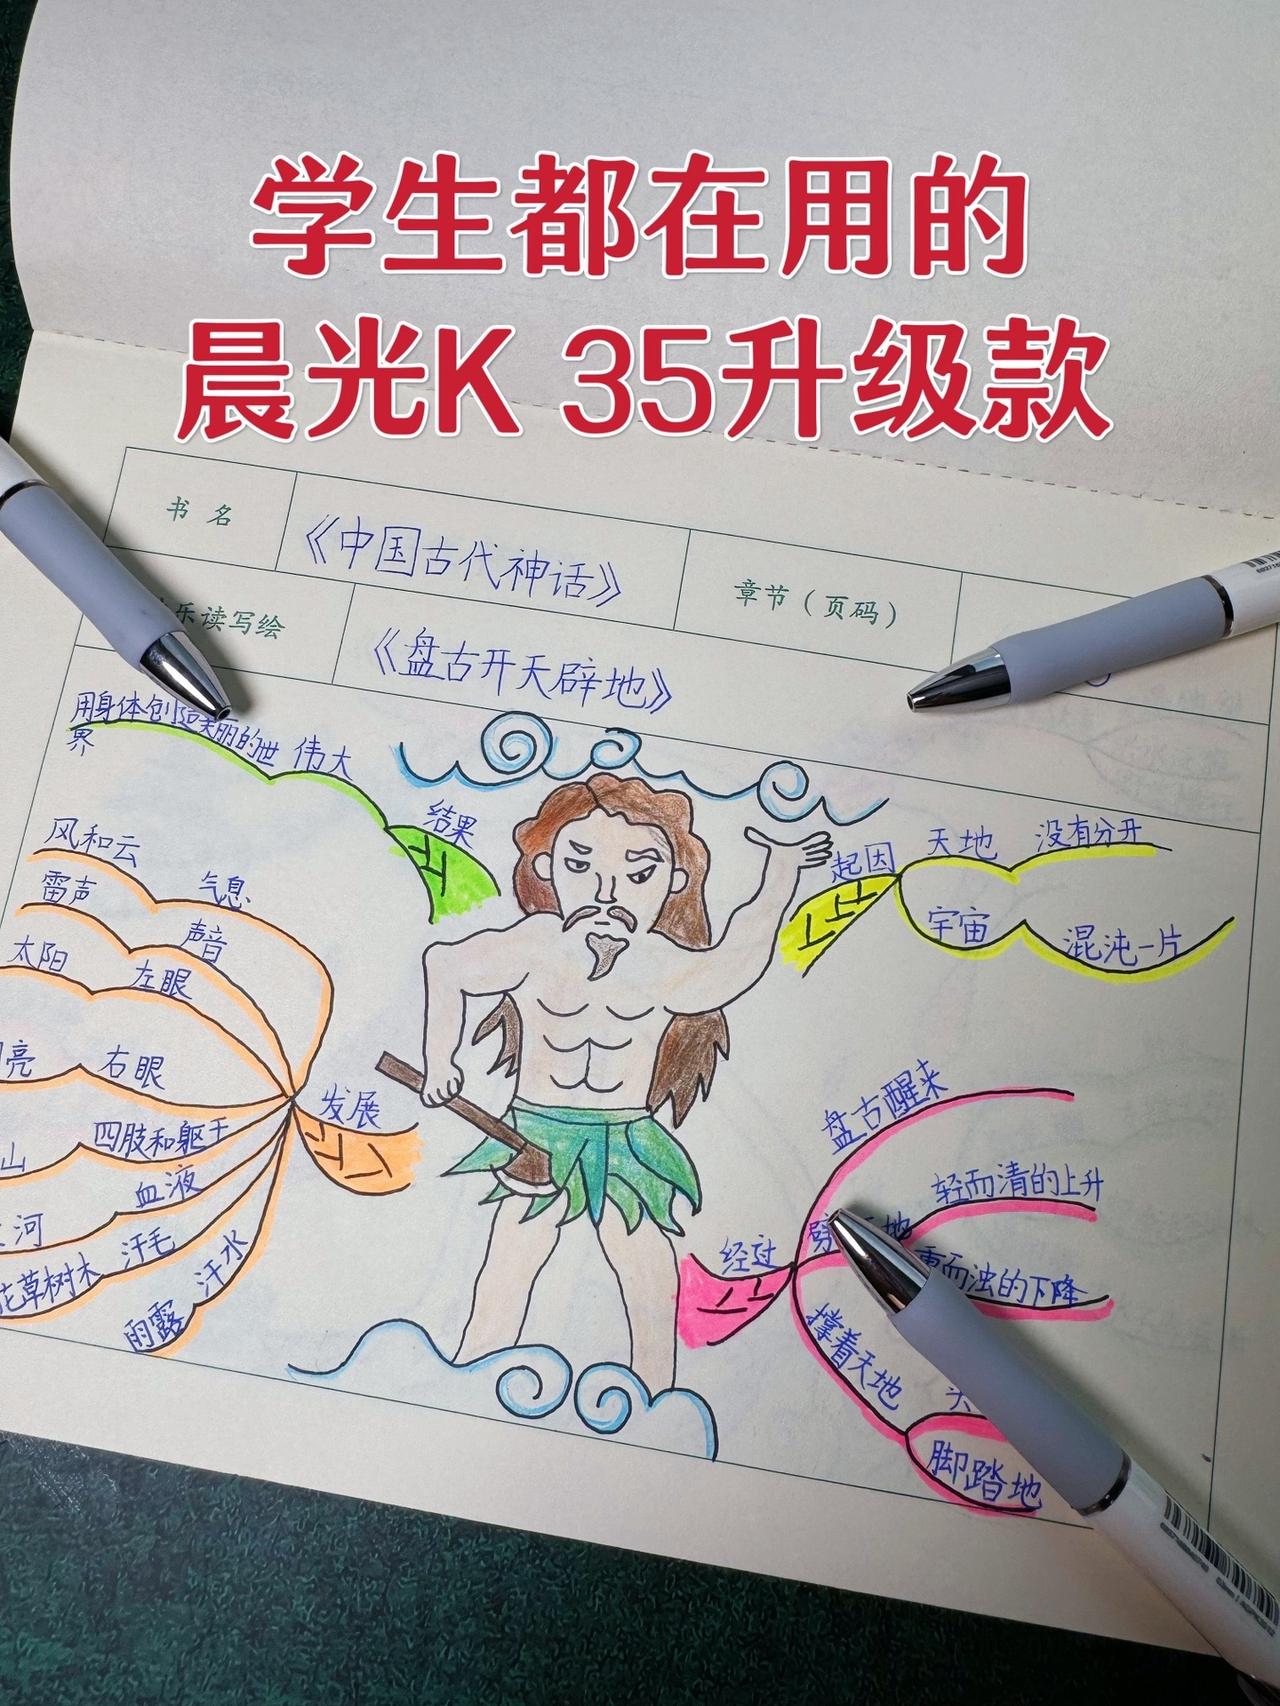 学生都在用的
晨光K 35升级款
书 名
《中国古代神话》
章节（页码）
乐读写绘
《盘古开天辟地》
用身体创造美丽的世
界
伟大
结果
起因
天地
没有分开
宇宙
混沌一片
风和云
气息
雷声
声音
太阳
左眼
亮
右眼
山
四肢和躯干
发展
河
血液
花草树木
汗毛
雨露
汗水
经过
盘古醒来
劈
地
轻而清的上升
重而浊的下降
撑着天地
头
脚踏地